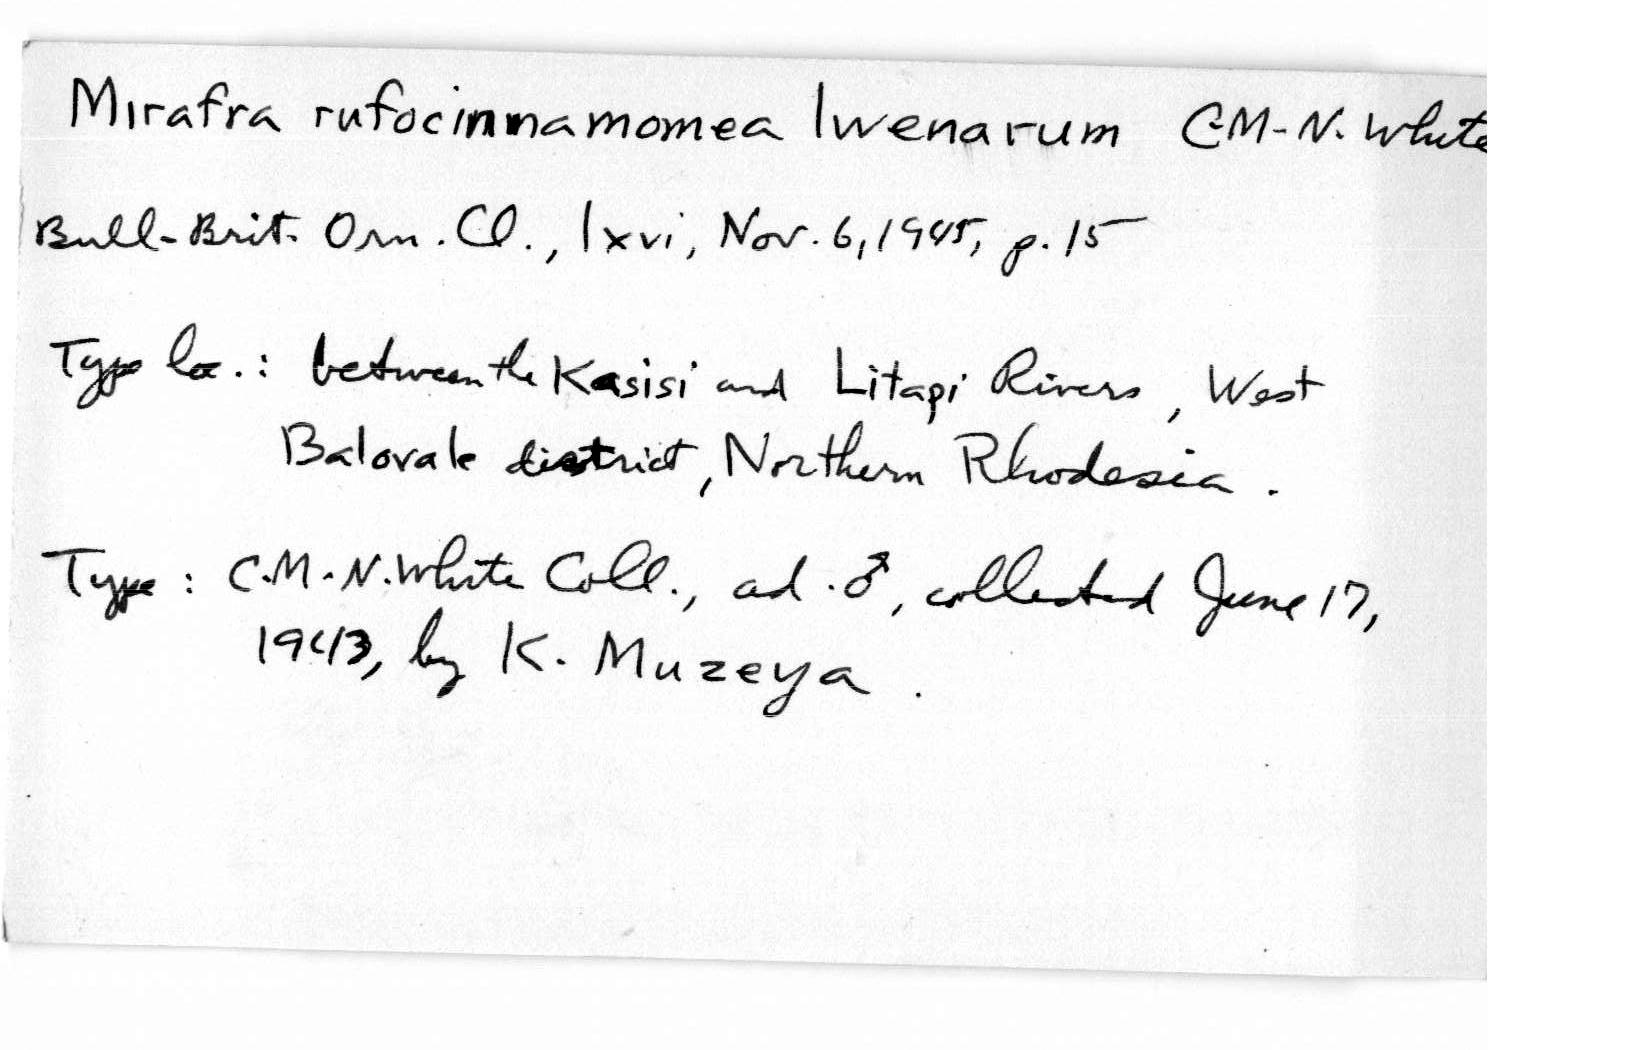 Mirafra rufocinnamomea lwenarum C.M.N. White
Bull. Brit. Orn. Cl., lxvi, Nov. 6, 1945, p. 15
Type loc.: between the Kasisi and Litapi Rivers, West
Balovale district, Northern Rhodesia.
Type: C.M.N. White Coll., ad. ♂, collected June 17,
1943, by K. Muzeya.